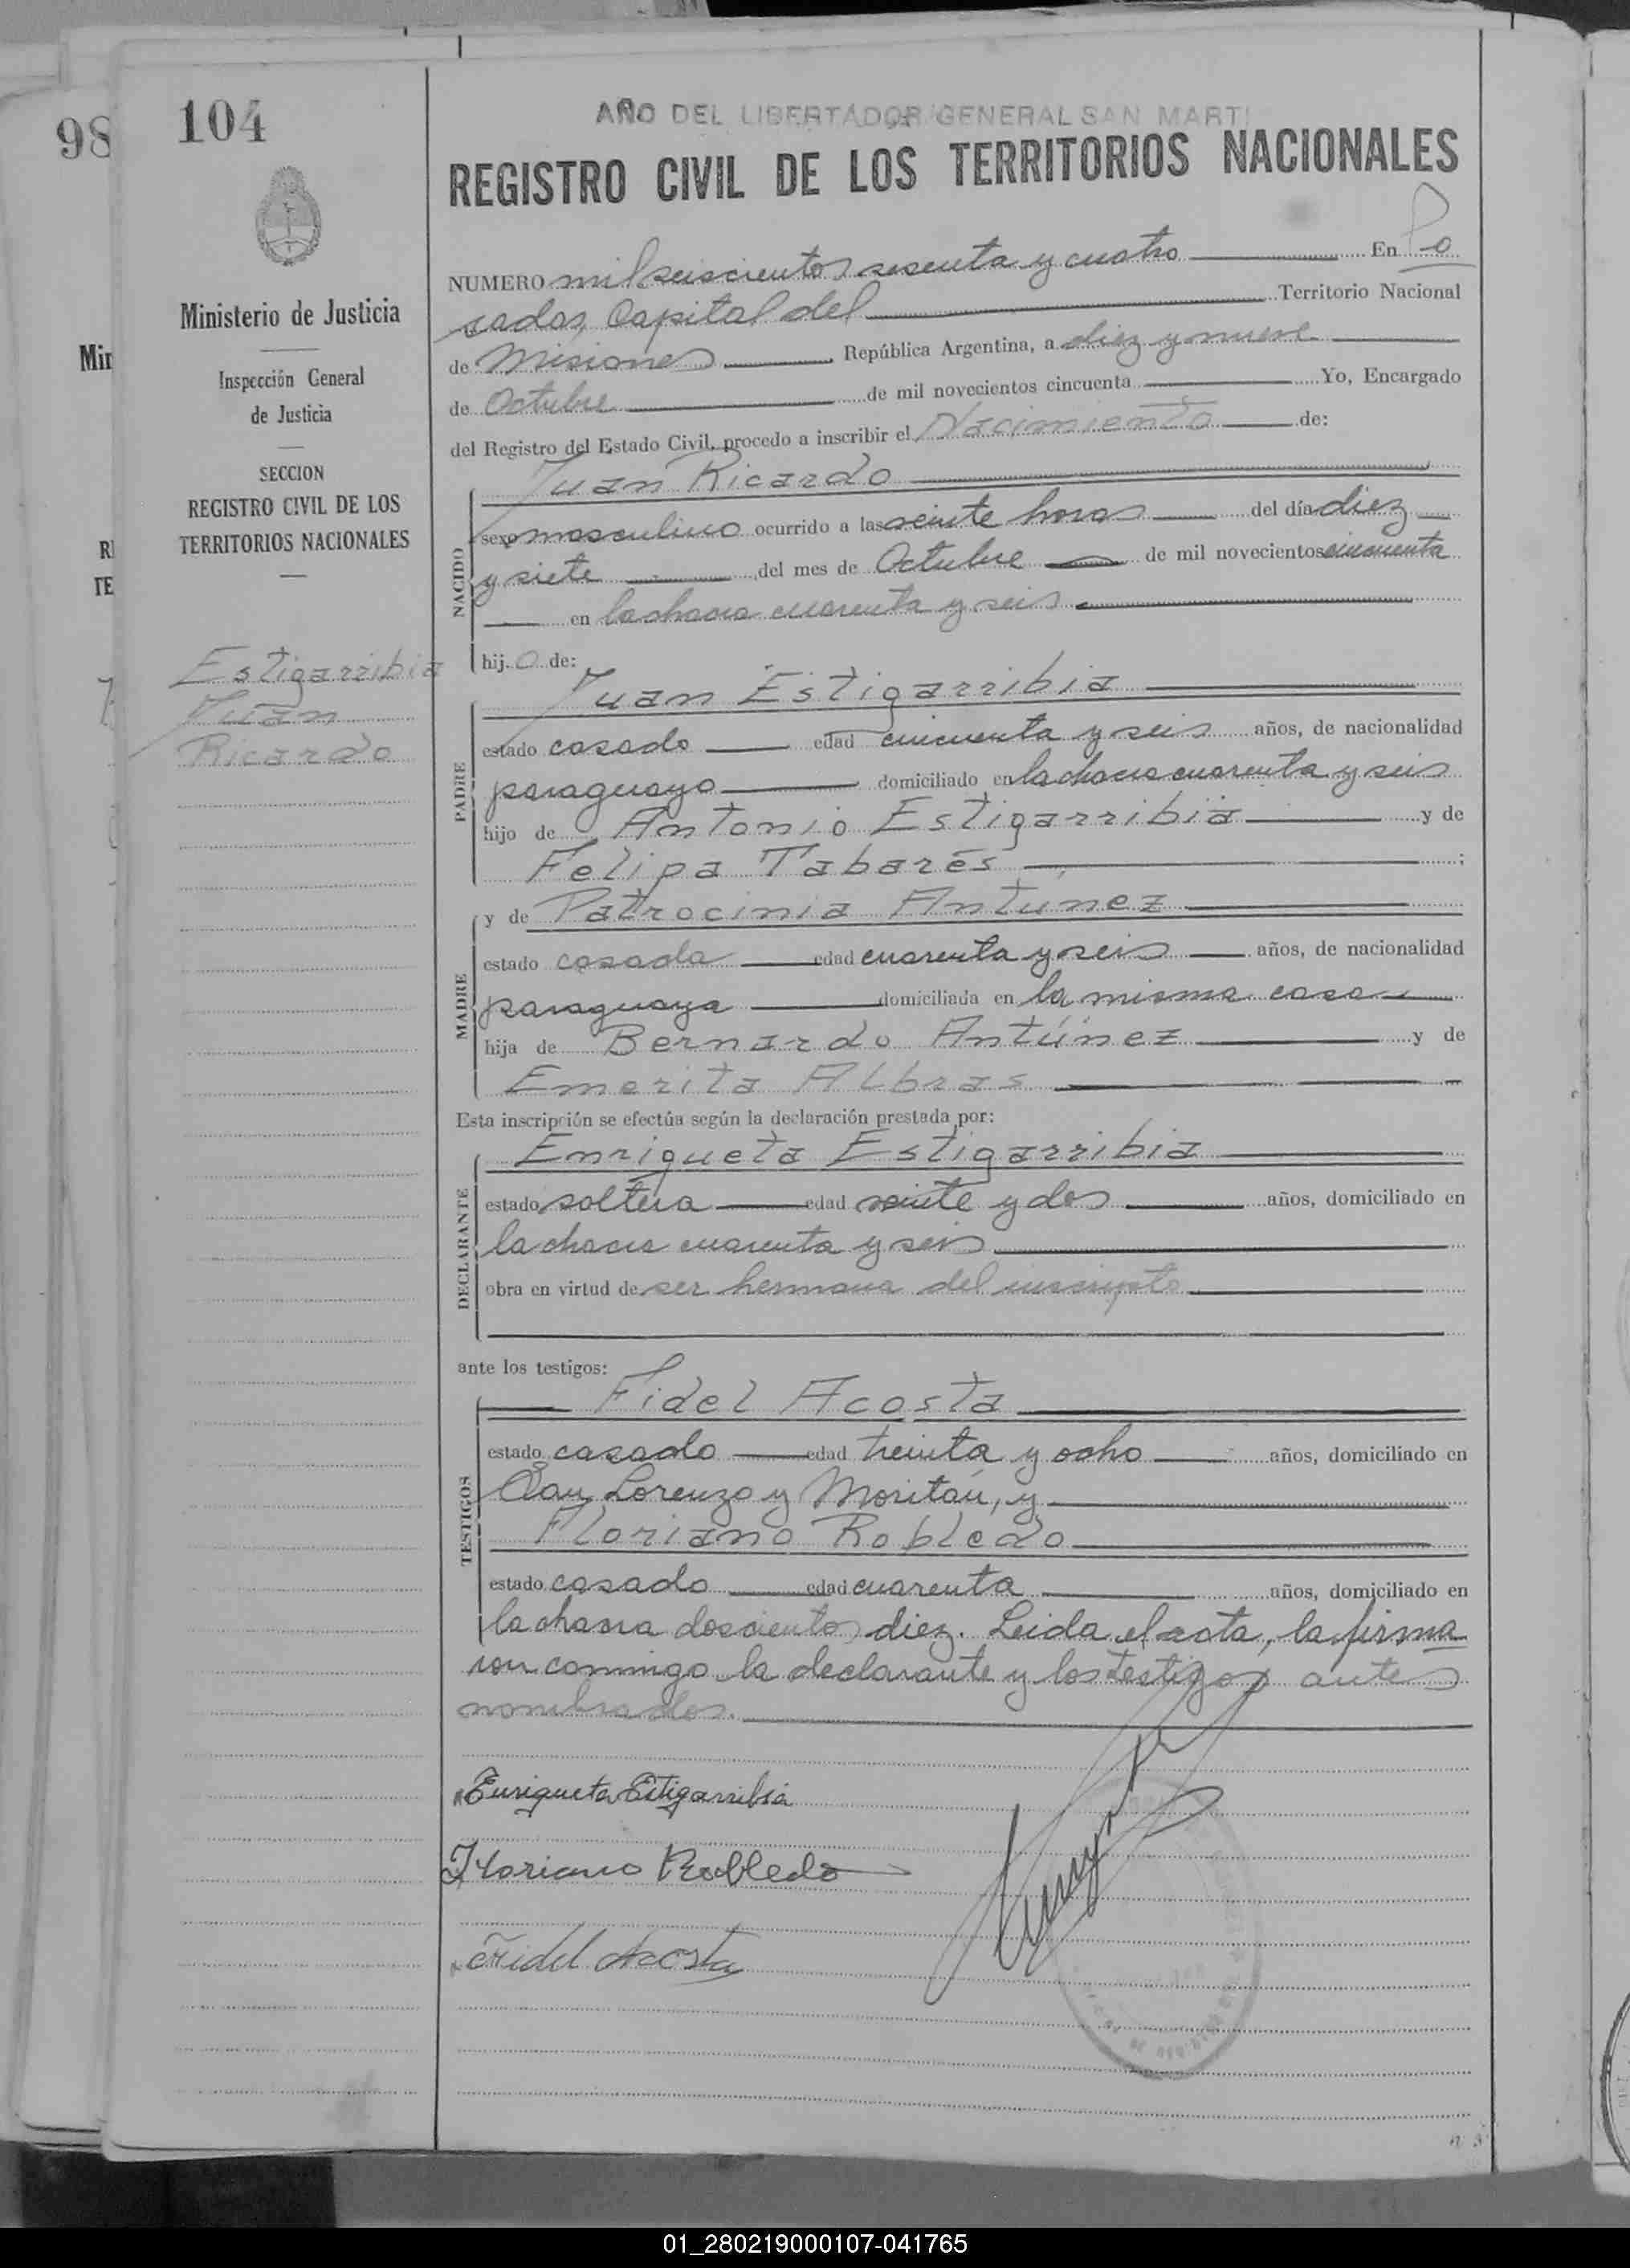 98
104
AÑO DEL LIBERTADOR GENERAL SAN MARTI
REGISTRO CIVIL DE LOS TERRITORIOS NACIONALES
NUMERO mil seiscientos sesenta y cuatro En Po
sadas, Capital del Territorio Nacional
de Misiones República Argentina, a diez y nueve
de Octubre de mil novecientos cincuenta Yo, Encargado
del Registro del Estado Civil, procedo a inscribir el Nacimiento de:
Juan Ricardo
NACIDO
sexo masculino ocurrido a las veinte horas del día diez
y siete del mes de Octubre de mil novecientos cincuenta
en la chacra cuarenta y seis
hijo de:
Juan Estigarribia
PADRE
estado casado edad cincuenta y seis años, de nacionalidad
paraguayo domiciliado en la chacra cuarenta y seis
hijo de Antonio Estigarribia y de
Felipa Tabarés ;
y de Patrocinia Antúnez
MADRE
estado casada edad cuarenta y seis años, de nacionalidad
paraguaya domiciliada en la misma casa
hija de Bernardo Antúnez y de
Emerita Albras
Esta inscripción se efectúa según la declaración prestada por:
Enriqueta Estigarribia
DECLARANTE
estado soltera edad veinte y dos años, domiciliado en
la chacra cuarenta y seis
obra en virtud de ser hermana del inscripto
ante los testigos:
Fidel Acosta
TESTIGOS
estado casado edad treinta y ocho años, domiciliado en
San Lorenzo y Moritán, y
Floriano Robledo
estado casado edad cuarenta años, domiciliado en
la chacra doscientos diez. Leida el acta, la firma
ron conmigo la declarante y los testigos antes
nombrados.
Enriqueta Estigarribia
Floriano Robledo
Fidel Acosta
Ministerio de Justicia
Inspección General
de Justicia
SECCION
REGISTRO CIVIL DE LOS
TERRITORIOS NACIONALES
Estigarribia
Juan
Ricardo
01_280219000107-041765